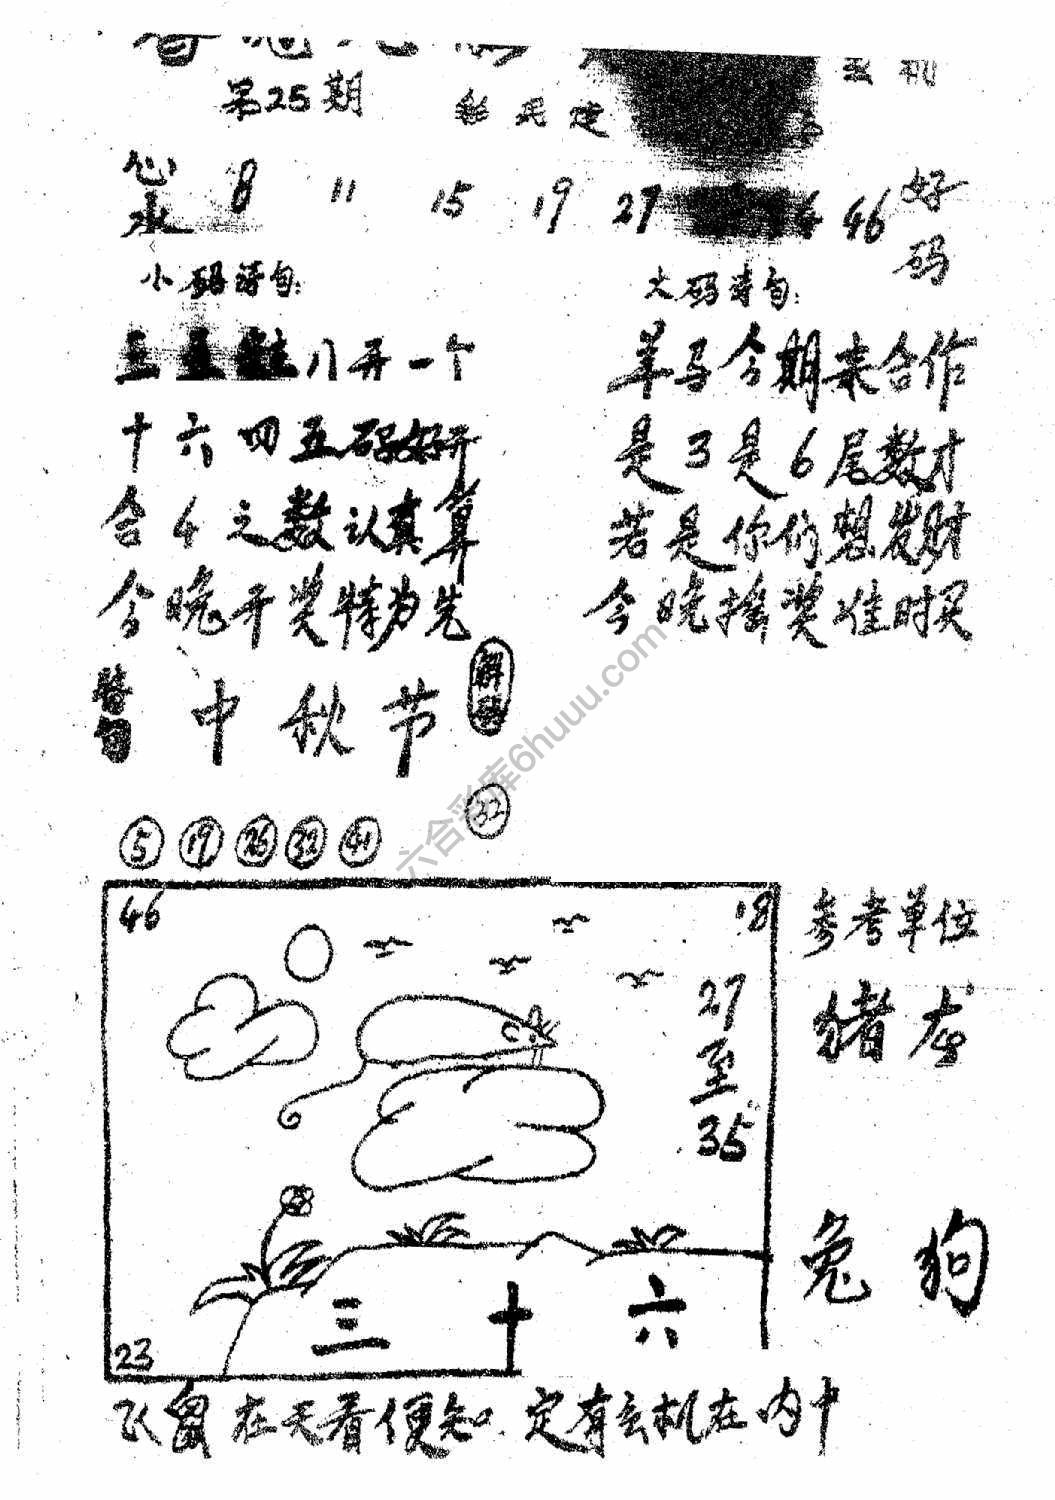 第25期
心水 8 11 15 19 27 46 好码
小码诗句:
八开一个
十六四五码好开
合4之数认真算
今晚开奖特为先
大码诗句:
羊马今期来合作
是3是6尾数才
若是你们想发财
今晚摇奖准时买
中秋节
5 19 26 32 41
32
六合彩库6huuu.com
46
18
27至35
三十六
23
参考单位
猪龙
兔狗
飞鼠在天看便知 定有玄机在内中